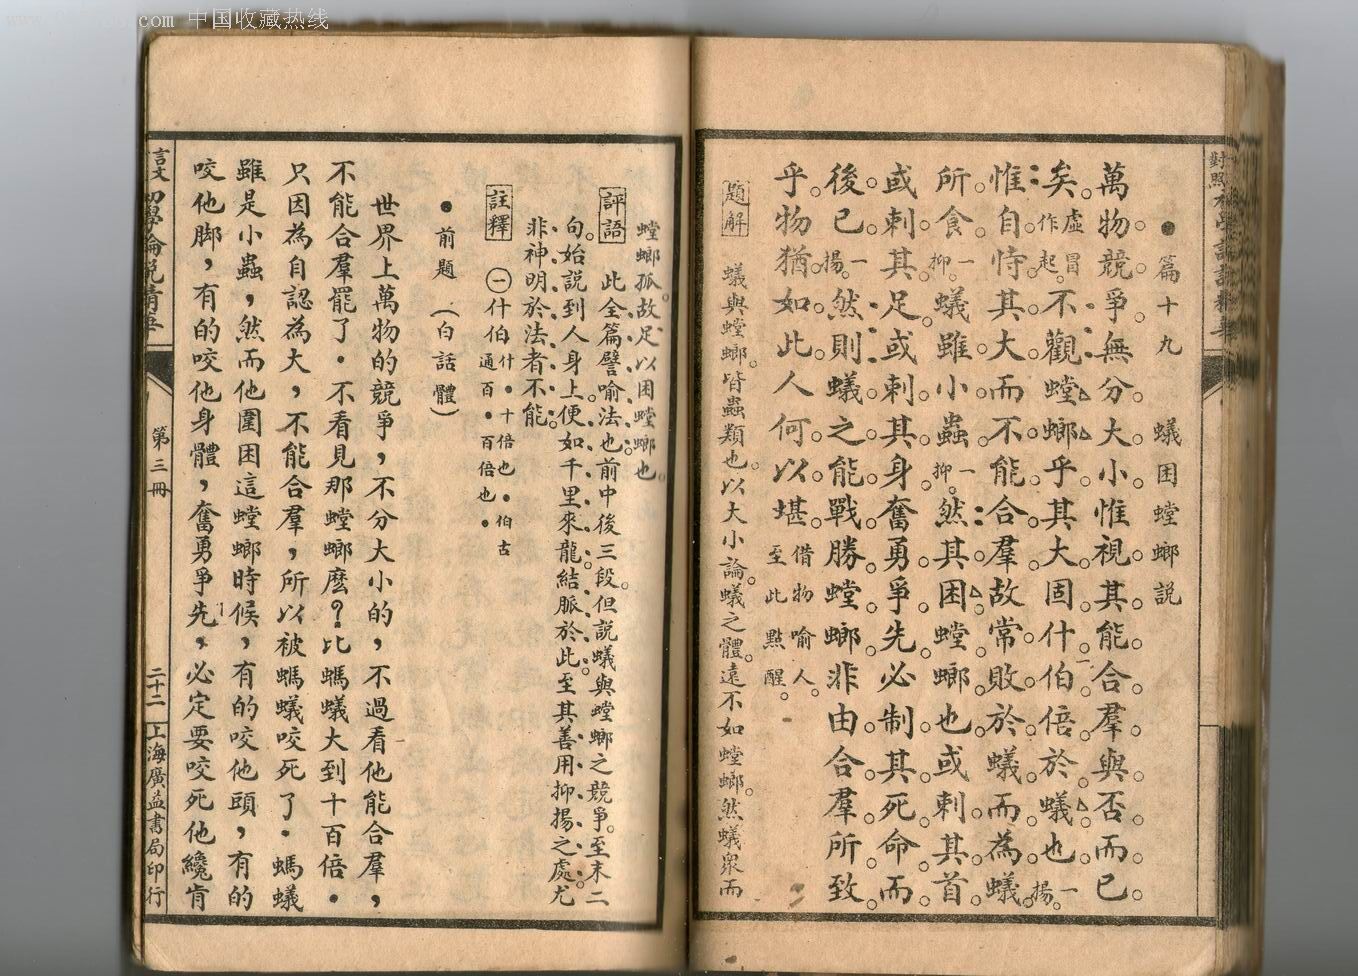 中国收藏热线
篇十九　蟻困螳螂説
萬物競爭。無分大小。惟視其能合羣與否而已
矣。虛冒作起。不觀螳螂乎。其大固什伯倍於蟻也。一揚。
惟自恃其大而不能合羣。故常敗於蟻。而為蟻
所食。一抑。蟻雖小蟲。一抑。然其困螳螂也。或刺其首。
或刺其足。或刺其身。奮勇爭先。必制其死命而
後已。一揚。然則蟻之能戰勝螳螂。非由合羣所致
乎。物猶如此。人何以堪。借物喻人。至此點醒。
題解　蟻與螳螂。皆蟲類也。以大小論。蟻之體。遠不如螳螂。然蟻衆而
螳螂孤。故足以困螳螂也。
評語　此全篇譬喻法也。前中後三段。但説蟻與螳螂之競爭。至末二
句。始説到人身上。便如千里來龍。結脈於此。至其善用抑揚之處。尤
非神明於法者不能。
註釋　㊀什伯什・十倍也・伯古通百・百倍也・
前題（白話體）
世界上萬物的競爭，不分大小的，不過看他能合羣，
不能合羣罷了・不看見那螳螂麽？比螞蟻大到十百倍・
只因為自認為大，不能合羣，所以被螞蟻咬死了・螞蟻
雖是小蟲，然而他圍困這螳螂時候，有的咬他頭，有的
咬他脚，有的咬他身體，奮勇爭先，必定要咬死他纔肯
言文
初學論説精華
第三冊
二十二
上海廣益書局印行